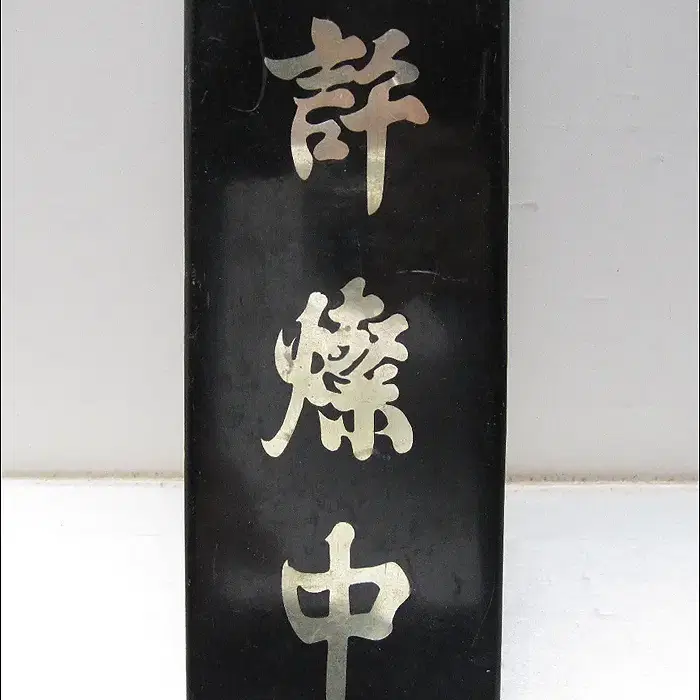 許燦中